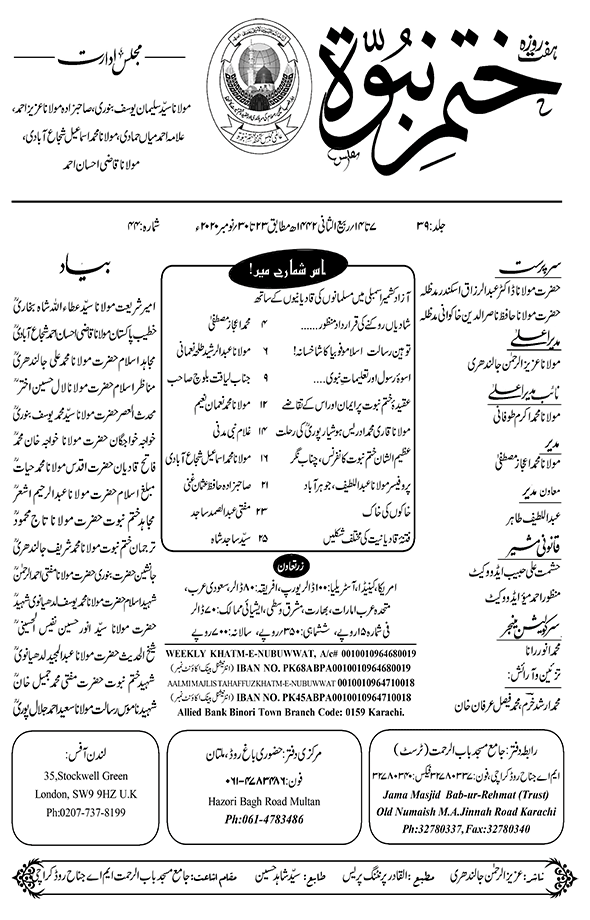 ہفت روزہ
ختم نبوّۃ
مجلس ادارت
مولانا سیّد سلیمان یوسف بنوری، صاحبزادہ مولانا عزیز احمد،
علامہ احمد میاں حمادی، مولانا محمد اسماعیل شجاع آبادی،
مولانا قاضی احسان احمد
جلد: ۳۹
۷ تا ۱۴؍ ربیع الثانی ۱۴۴۲ھ مطابق ۲۳ تا ۳۰؍ نومبر ۲۰۲۰ء
شمارہ: ۴۴
سرپرست
حضرت مولانا ڈاکٹر عبدالرزاق اسکندر مدظلہ
حضرت مولانا حافظ ناصر الدین خاکوانی مدظلہ
مدیر اعلیٰ
مولانا عزیز الرحمٰن جالندھری
نائب مدیر اعلیٰ
مولانا محمد اکرم طوفانی
مدیر
مولانا محمد اعجاز مصطفیٰ
معاون مدیر
عبداللطیف طاہر
قانونی مشیر
حشمت علی حبیب ایڈووکیٹ
منظور احمد میؤ ایڈووکیٹ
سرکولیشن منیجر
محمد انور رانا
تزئین و آرائش:
محمد ارشد خرم، محمد فیصل عرفان خان
اس شمارے میں!
آزاد کشمیر اسمبلی میں مسلمانوں کی قادیانیوں کے ساتھ
شادیاں روکنے کی قرارداد منظور...... ۴ محمد اعجاز مصطفیٰ
توہین رسالت اسلاموفوبیا کا شاخسانہ! ۶ مولانا عبدالرشید طلحہ نعمانی
اسوۂ رسول اور تعلیمات نبوی.... ۹ جناب لیاقت بلوچ صاحب
عقیدۂ ختم نبوت پر ایمان اور اس کے تقاضے ۱۲ مولانا محمد نعمان نعیم
مولانا قاری محمد ادریس ہوشیارپوریؒ کی رحلت ۱۴ غلام نبی مدنی
عظیم الشان ختم نبوت کانفرنس، چناب نگر ۱۶ مولانا محمد اسماعیل شجاع آبادی
پروفیسر مولانا عبداللطیف، جوہر آباد ۲۱ صاحبزادہ حافظ عثمان غنی
خاکوں کی خاک ۲۳ مفتی عبدالصمد ساجد
فتنۂ قادیانیت کی مختلف شکلیں ۲۵ سیّد ساجد شاہ
زرتعاون
امریکا، کینیڈا، آسٹریلیا: ۱۰۰ ڈالر یورپ، افریقہ: ۸۰ ڈالر، سعودی عرب،
متحدہ عرب امارات، بھارت، مشرق وسطی، ایشیائی ممالک: ۷۰ ڈالر
فی شمارہ ۱۵ روپے، ششماہی: ۳۵۰ روپے، سالانہ: ۷۰۰ روپے
WEEKLY KHATM-E-NUBUWWAT, A/c# 0010010964680019
IBAN NO. PK68ABPA0010010964680019 (انٹرنیشنل بینک اکاؤنٹ نمبر)
AALMI MAJLIS TAHAFFUZ KHATM-E-NUBUWWAT 0010010964710018
IBAN NO. PK45ABPA0010010964710018 (انٹرنیشنل بینک اکاؤنٹ نمبر)
Allied Bank Binori Town Branch Code: 0159 Karachi.
بیاد
امیر شریعت مولانا سیّد عطاء اللہ شاہ بخاریؒ
خطیب پاکستان مولانا قاضی احسان احمد شجاع آبادیؒ
مجاہد اسلام حضرت مولانا محمد علی جالندھریؒ
مناظر اسلام حضرت مولانا لال حسین اخترؒ
محدث العصر حضرت مولانا سیّد محمد یوسف بنوریؒ
خواجہ خواجگان حضرت مولانا خواجہ خان محمدؒ
فاتح قادیان حضرت اقدس مولانا محمد حیاتؒ
مبلغ اسلام حضرت مولانا عبدالرحیم اشعرؒ
مجاہد ختم نبوت حضرت مولانا تاج محمودؒ
ترجمان ختم نبوت حضرت مولانا محمد شریف جالندھریؒ
جانشین حضرت بنوری حضرت مولانا مفتی احمد الرحمٰنؒ
شہید اسلام حضرت مولانا محمد یوسف لدھیانوی شہیدؒ
حضرت مولانا سیّد انور حسین نفیس الحسینیؒ
شیخ الحدیث حضرت مولانا عبدالمجید لدھیانویؒ
شہید ختم نبوت حضرت مفتی محمد جمیل خانؒ
شہید ناموس رسالت مولانا سعید احمد جلال پوریؒ
رابطہ دفتر: جامع مسجد باب الرحمت (ٹرسٹ)
ایم اے جناح روڈ کراچی، فون: ۳۲۷۸۰۳۳۷ فیکس: ۳۲۷۸۰۳۴۰
Jama Masjid Bab-ur-Rehmat (Trust)
Old Numaish M.A.Jinnah Road Karachi
Ph:32780337, Fax:32780340
مرکزی دفتر: حضوری باغ روڈ، ملتان
فون: ۰۶۱-۴۷۸۳۴۸۶
Hazori Bagh Road Multan
Ph:061-4783486
لندن آفس:
35,Stockwell Green
London, SW9 9HZ U.K
Ph:0207-737-8199
ناشر: عزیز الرحمٰن جالندھری مطبع: القادر پرنٹنگ پریس طابع: سیّد شاہد حسین مقام اشاعت: جامع مسجد باب الرحمت ایم اے جناح روڈ کراچی